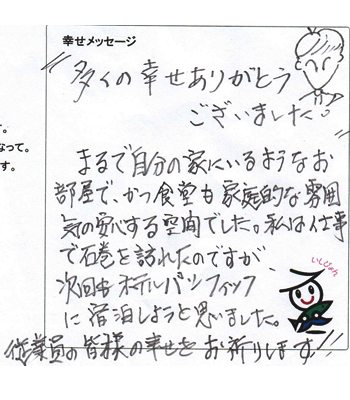 幸せメッセージ
多くの幸せありがとう
ございました。
す。
なって。
す。
まるで自分の家にいるようなお
部屋で、かつ食堂も家庭的な雰囲
気の安心する空間でした。私は仕事
で石巻を訪れたのですが、
次回もホテルパシフィック
に宿泊しようと思いました。
いしぴょん
従業員の皆様の幸せをお祈りします!!